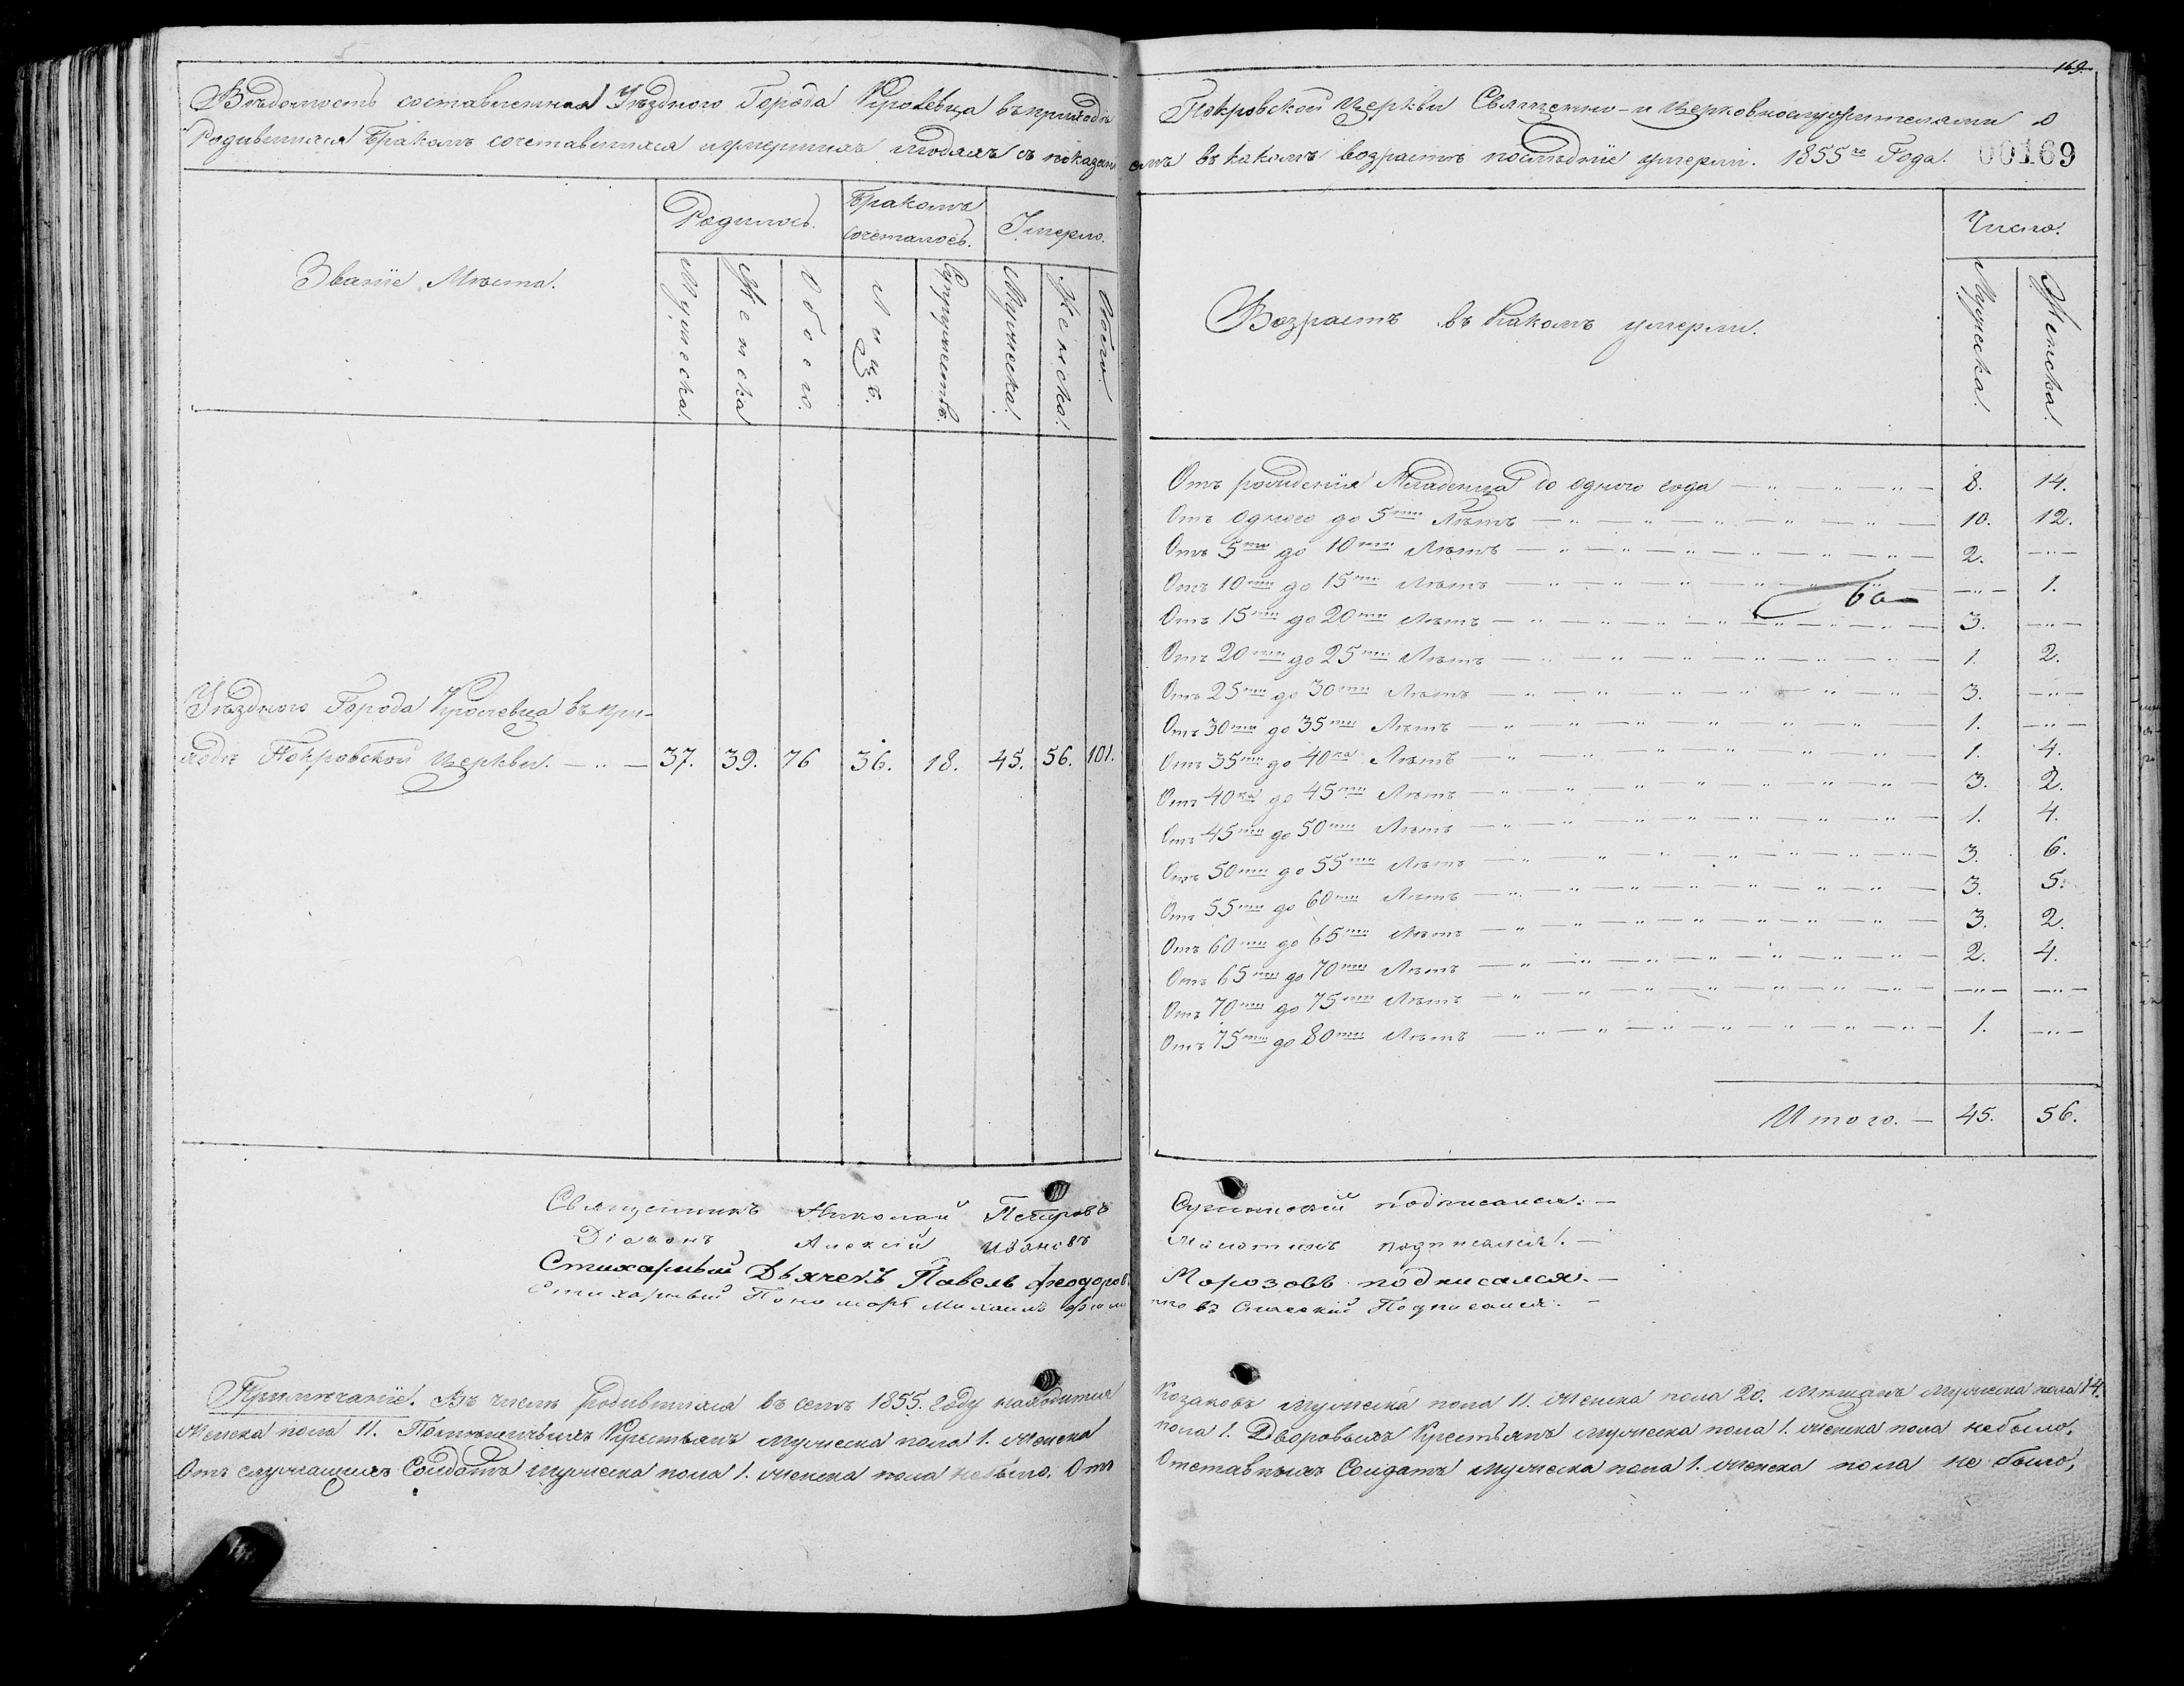 169.
Вѣдомость составленная Уѣзднаго Города Кролевца въ приходѣ Покровской Церкви Священно-и Церковнослужителями о
Родившихся Бракомъ сочетавшихся и умершихъ людяхъ съ показаніемъ въ какомъ возрастѣ послѣдніе умерли. 1855го Года. 00169
Званіе Мѣста.
Родилось.
Бракомъ сочеталось.
Умерло.
Мужеска.
Женска
Обоего.
Лицъ.
Супружествъ.
Мужеска.
Женска.
Обоего.
Уѣзднаго Города Кролевца въ при-
ходѣ Покровской Церкви. — 37. 39. 76 36. 18. 45. 56. 101.
Возрастъ въ какомъ умерли.
Число.
Мужеска.
Женска.
Отъ рожденія Младенца до одного года — 8. 14.
Отъ одного до 5ти Лѣтъ — 10. 12.
Отъ 5ти до 10ти Лѣтъ — 2. —„—
Отъ 10ти до 15ти Лѣтъ — —„— 1.
Отъ 15ти до 20ти Лѣтъ — 3. —„—
Отъ 20ти до 25ти Лѣтъ — 1. 2.
Отъ 25ти до 30ти Лѣтъ — 3. —„—
Отъ 30ти до 35ти Лѣтъ — 1. —„—
Отъ 35ти до 40ка Лѣтъ — 1. 4.
Отъ 40ка до 45ти Лѣтъ — 3. 2.
Отъ 45ти до 50ти Лѣтъ — 1. 4.
Отъ 50ти до 55ти Лѣтъ — 3. 6.
Отъ 55ти до 60ти Лѣтъ — 3. 5.
Отъ 60ти до 65ти Лѣтъ — 3. 2.
Отъ 65ти до 70ти Лѣтъ — 2. 4.
Отъ 70ти до 75ти Лѣтъ — —„— —„—
Отъ 75ти до 80ти Лѣтъ — 1. —„—
Итого. — 45. 56.
Священникъ Николай Петровъ подписался. —
Діаконъ Алексій Ивановъ подписался. —
Стихарный Дьячекъ Павелъ Феодоровъ Морозовъ подписался. —
Стихарный Пономарь Михаилъ Подписался. —
Примѣчаніе. Въ числѣ родившихся въ семъ 1855. году находится Козаковъ мужеска пола 11. женска пола 20. Мѣщанъ мужеска пола 14.
женска пола 11. Помѣщичьихъ Крестьянъ мужеска пола 1. женска пола 1. Дворовыхъ Крестьянъ мужеска пола 1. женска пола небыло,
Отъ служащихъ Солдатъ мужеска пола 1. женска пола небыло. Отъ Отставныхъ Солдатъ мужеска пола 1. женска пола не было,